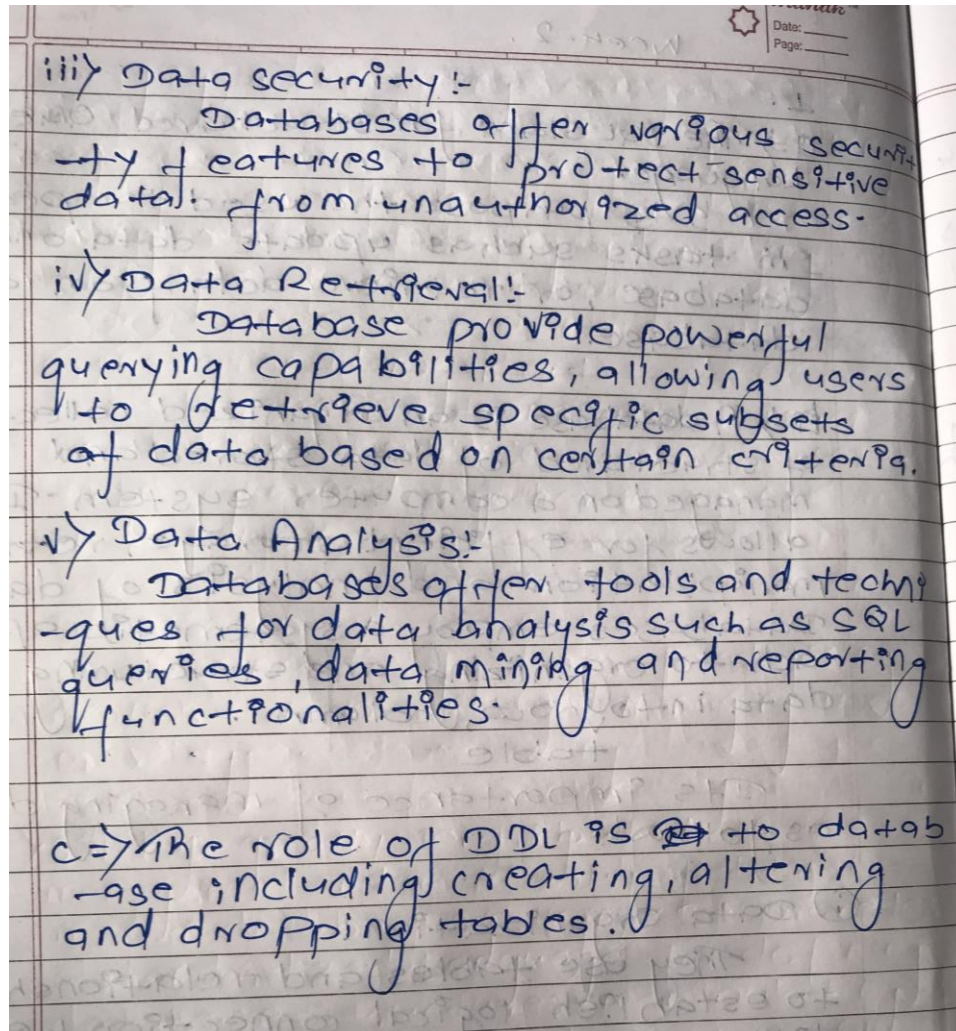 Date:
Page:
iii) Data security :-
Databases offer various securi
-ty features to protect sensitive
data. from unauthorized access.
iv) Data Retrieval:-
Database provide powerful
querying capabilities, allowing users
to retrieve specific subsets
of data based on certain criteria.
v) Data Analysis:-
Databases offer tools and techni
-ques for data analysis such as SQL
queries, data mining and reporting
functionalities.
c=> The role of DDL is to datab
-ase including creating, altering
and dropping tables.